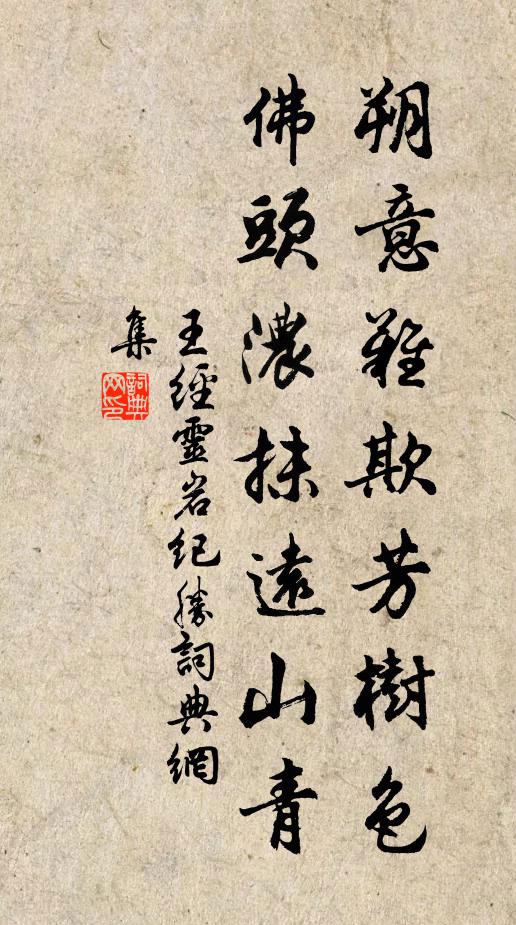 朔意難欺芳樹色
佛頭濃抹遠山青
王經靈岩紀勝詞典網
集
詞典網印